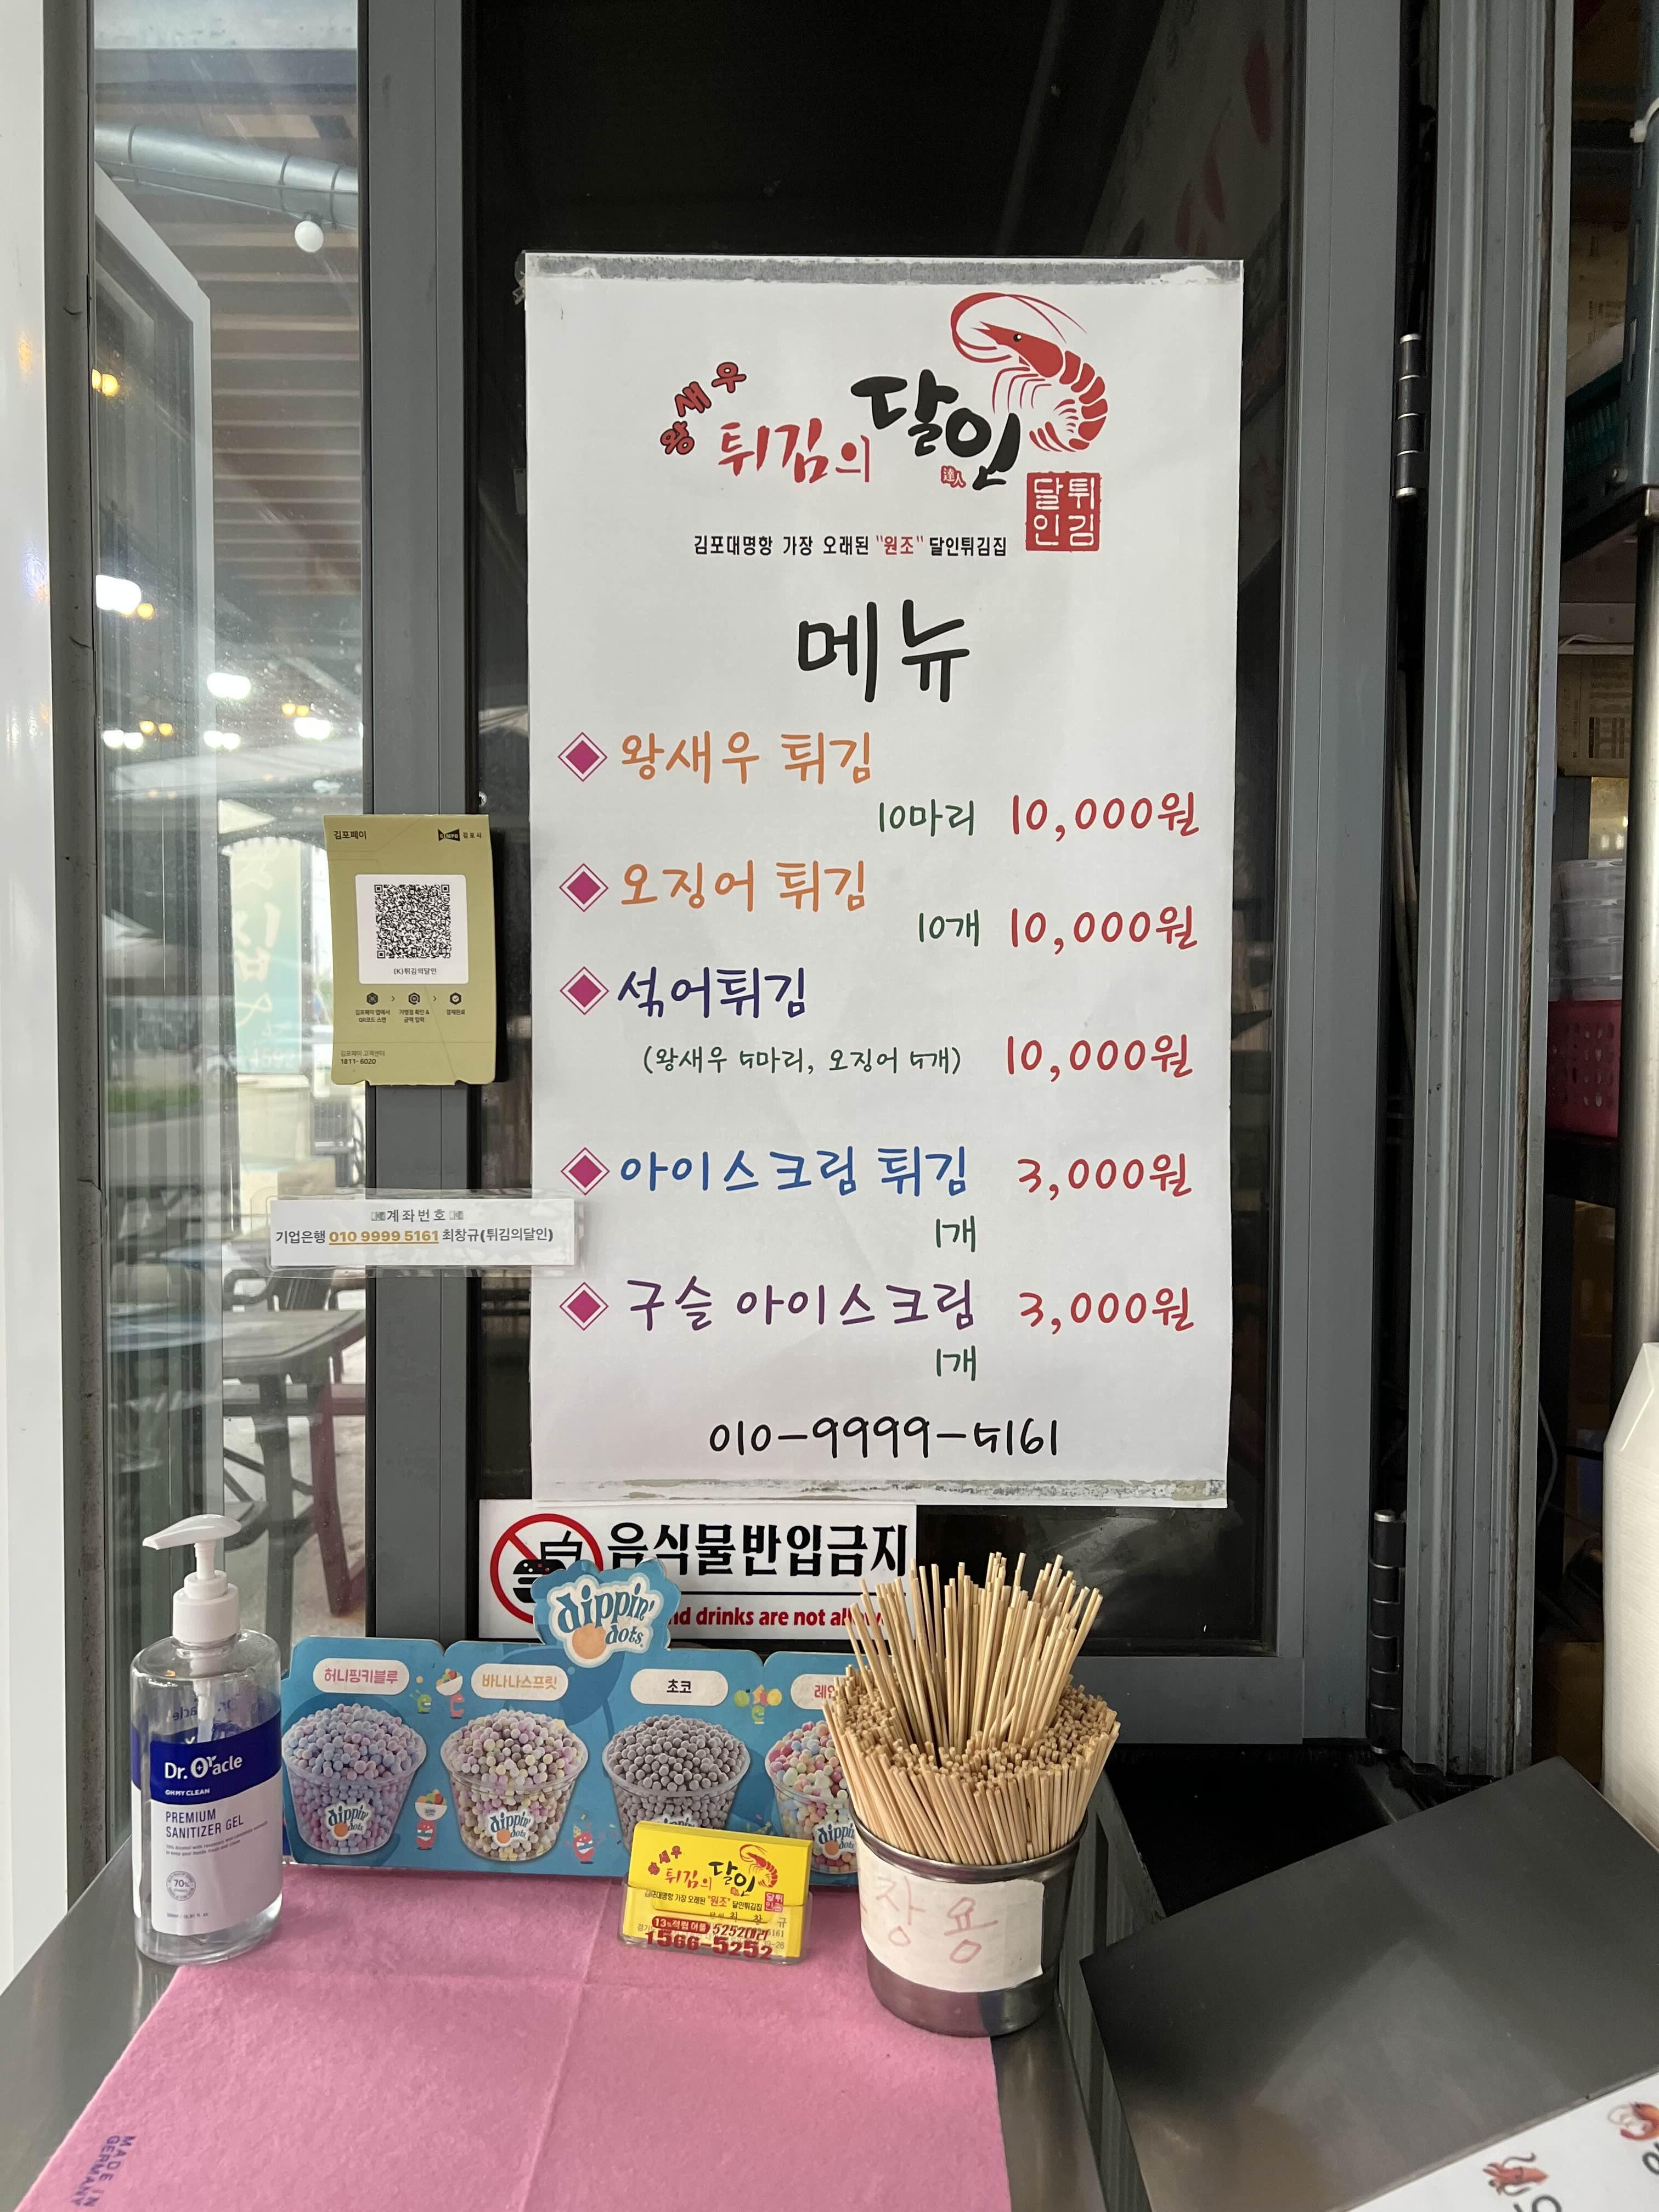 왕새우
튀김의 달인
達人
튀김
달인
김포대명항 가장 오래된 "원조" 달인튀김집
메뉴
왕새우 튀김
10마리 10,000원
오징어 튀김
10개 10,000원
섞어튀김
(왕새우 5마리, 오징어 5개) 10,000원
아이스크림 튀김 3,000원
1개
구슬 아이스크림 3,000원
1개
010-9999-5161
김포페이
김포시
(K)튀김의달인
김포페이 앱에서
QR코드 스캔
가맹점 확인 &
금액 입력
결제완료
김포페이 고객센터
1811-6020
계좌번호
기업은행 010 9999 5161 최창규(튀김의달인)
음식물반입금지
drinks are not
dippin'
dots
허니핑키블루
바나나스프릿
초코
dippin'
dots
dippin'
dots
dippin'
dots
Dr. Oracle
OH MY CLEAN
PREMIUM
SANITIZER GEL
70%
왕새우
튀김의 달인
튀김
달인
김포대명항 가장 오래된 "원조" 달인튀김집
최 창 규
13%적립 어플 5252대리
1566-5252
장용
MADE IN
GERMANY